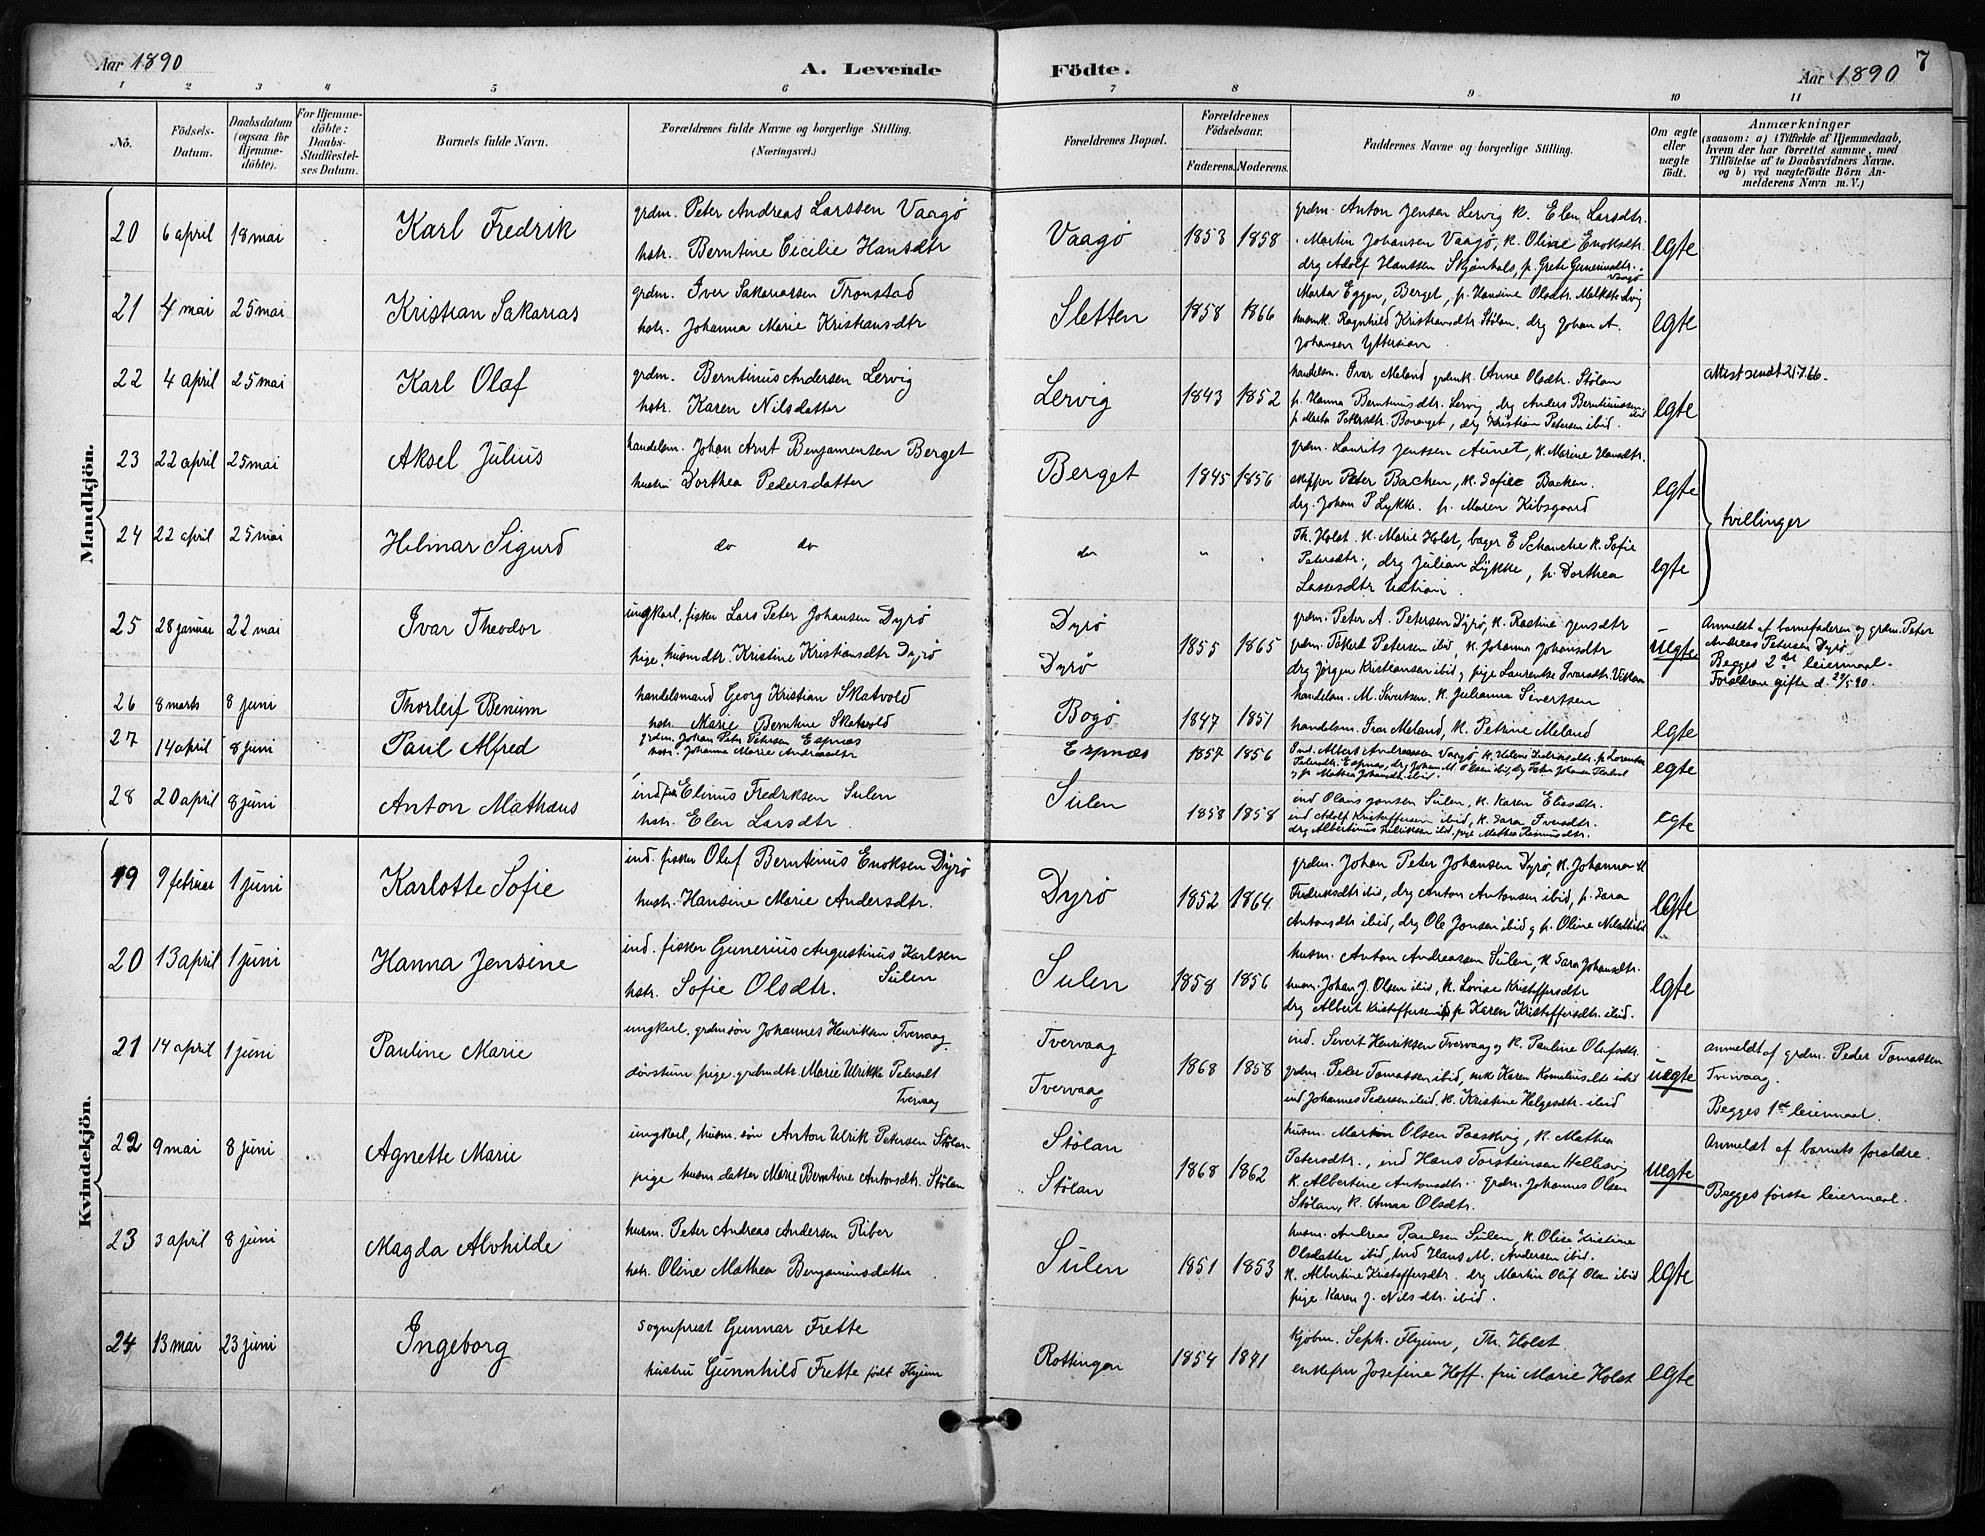 Aar 1890
A. Levende
Födte.
Aar 1890
7
1 2 3 4 5 6 7 8 9 10 11
No.
Födsels-Datum.
Daabsdatum (ogsaa for Hjemmedöbte).
For Hjemmedöbte: Daabs-Stadfæstelses Datum.
Barnets fulde Navn.
Forældrenes fulde Navne og borgerlige Stilling. (Næringsvei.)
Forældrenes Bopæl.
Forældrenes Födselsaar.
Faderens. Moderens.
Faddernes Navne og borgerlige Stilling.
Om ægte eller uægte födt.
Anmærkninger
(saasom: a) i Tilfælde af Hjemmedaab, hvem der har forrettet samme, med Tilföielse af to Daabsvidners Navne. og b) ved uægtefödte Börn Anmelderens Navn m. V.)
Mandkjön.
20 6 april 18 mai Karl Fredrik
grdm. Peter Andreas Larssen Vaagö
hstr. Berntine Cicilie Hansdtr
Vaagö 1853 1858
grdm. Anton Jensen Lervig k. Elen Larsdtr.
Martin Johansen Vaagö, k. Oline Enoksdtr.
drg Adolf Hanssen Skjönhals, p. Grete Guneriusdtr. Vaagö
egte
21 4 mai 25 mai Kristian Sakarias
grdm. Iver Sakariassen Tronstad
hstr. Johanna Marie Kristiansdtr
Sletten 1858 1866
Marta Eggen, Berget, p. Handine Olsdtr
husmk. Ragnhild Kristiansdtr Stölan, drg Johan A.
Johansen Yttersian
egte
22 4 april 25 mai Karl Olaf
grdm. Berntinus Andersen Lervig
hstr. Karen Nilsdatter
Lervig 1843 1852
handelsm. Ivar Meland grdmk. Anne Olsdtr. Stölan
p. Hanna Berntinusdtr. Lervig, drg Anders Berntinussen ibid
p Marta Petersdtr. Boranget, drg Kristian Petersen ibid.
egte
attest sendt 21766.
23 22 april 25 mai Aksel Julius
handelsm. Johan Arnt Benjamensen Berget
hustru Dorthea Pedersdatter
Berget 1845 1856
grdm. Laurits Jenssen Aunet, k. Marine Hansdtr.
skipper Peter Bachen, k. Sofie Backen.
drg. Johan P Lykke. p. Maren Kibsgaard
egte
tvillinger
24 22 april 25 mai Hilmar Sigurd
do do
do " "
Th. Holst. k. Marie Holst, bager E Schanche k. Sofie
Petersdtr, drg Julian Lykke, p. Dorthea
Lassesdtr Uation.
egte
25 28 januar 22 mai Ivar Theodor
ungkarl, fisker Lars Peter Johansen Dyrö
pige, husmdtr. Kristine Kristiansdtr Dyrö
Dyrö
Dyrö
1855 1865
grdm. Peter A. Petersen Dyrö, k. Rastine Jensdtr
grdm. Pikerd Petersen ibid, k. Johanna Johansdtr
drg Jörgen Kristiansen ibid og pige Laurentse Ivarsdtr. Viklan
uegte
Anmeldt af barnefaderen og grdm. Peter
Andreas Petersen Dyrö.
Begges 2det leiermaal.
Foreldrene gifte d. 29/5 90.
26 8 marts 8 juni Thorleif Benum
handelsmand Georg Kristian Skatvold
hstr. Marie Berntine Skatvold
Bogö 1847 1851
handelsm. M. Sivertsen, k. Julianna Sivertsen
handelsm. Ivar Meland, k. Petrine Meland
egte
27 14 april 8 juni Paul Alfred
grdm. Johan Peter Petersen Espnæs
hstr. Johanna Marie Andreasdtr
Espnæs 1857 1856
Ind. Albert Andreassen Vaagö, k. Helene Fredriksdtr. p. Lorentse
Petersdtr. Espnæs, drg Johan M. Olsen ibid, drg Peter Johansen
og p. Mathea Johansdtr. ibid.
egte
28 20 april 8 juni Anton Mathæus
ind fisk Elinus Fredriksen Sulen
hstr. Elen Larsdtr.
Sulen 1858 1858
ind Olaus Jonsen Sulen, k. Karen Eliasdtr.
ind Adolf Kristoffersen ibid, k. Sara Iversdtr.
drg Albertinus Fredriksen ibid, pige Mathea Rasmusdtr.
egte
Kvindekjön.
19 9 februar 1 juni Karlotte Sofie
ind. fisker Oluf Berntinus Enoksen Dyrö
hustr. Hansine Marie Andersdtr.
Dyrö 1852 1864
grdm. Johan Peter Johansen Dyrö, k. Johanna M
Fredriksdtr ibid, drg Anton Antonsen ibid, p. Sara
Antonsdtr ibid, drg Ole Jonsen ibid og p. Oline Nilsdtr ibid
egte
20 13 april 1 juni Hanna Jensine
ind. fisker Gunerius Augustinus Karlsen
Sulen
hstr. Sofie Olsdtr.
Sulen 1858 1856
husm. Anton Andreassen Sulen, k Sara Johansdtr.
husm. Johan J. Olsen ibid, k. Lovise Kristoffersdtr
drg Albert Kristoffersen ibid p Karen Kristoffersdtr. ibid.
egte
21 14 april 1 juni Pauline Marie
ungkarl, grdmsön Johannes Henriksen Tvervaag
dövstum pige grdmdtr. Marie Ulrikke Petersdt
Tvervaag
Tvervaag
Tvervaag
1868 1858
ind. Sivert Henriksen Tvervaag og k. Pauline Olufsdtr.
grdm. Peder Tomassen ibid, enk Karen Korneliusdtr ibid
ind Johannes Pedersen ibid. k. Kristine Helgesdtr. ibid
uegte
anmeldt af grdm. Peder Tomassen
Tvervaag.
Begges 1st leiermaal.
22 9 mai 8 juni Agnette Marie
ungkarl, husm. sön Anton Ulrik Petersen Stölan
pige husm datter Marie Berntine Antonsdtr. Stölan
Stölan
Stölan
1868 1862
husm. Martin Olsen Paaskvig, k. Mathea
Petersdtr., ind Hans Torsteinsen Hellesvig
k. Albertine Antonsdtr. grdm. Johannes Olsen
Stölan, k. Anna Olsdtr.
uegte
Anmeldt af barnets foreldre.
Begges förste leiermaal.
23 3 april 8 juni Magda Alvhilde
husm. Peter Andreas Andersen Riber
hstr. Oline Mathea Benjaminsdatter
Sulen 1851 1853
husm. Andreas Paulsen Sulen, k. Olise Kristine
Olsdatter ibid, ind Hans M. Andersen ibid.
k. Albertine Kristoffersdtr. drg Martin Oluf Olsen ibid
pige Karen J. Nilsdtr. ibid.
egte
24 13 mai 23 juni Ingeborg
Sogneprest Gunnar Frette
hustru Gunnhild Frette födt Flyum
Rottingen 1854 1871
kjöbm. Seph. Flyum, Th. Holst
enkefru Josefine Hoff. fru Marie Holst
egte